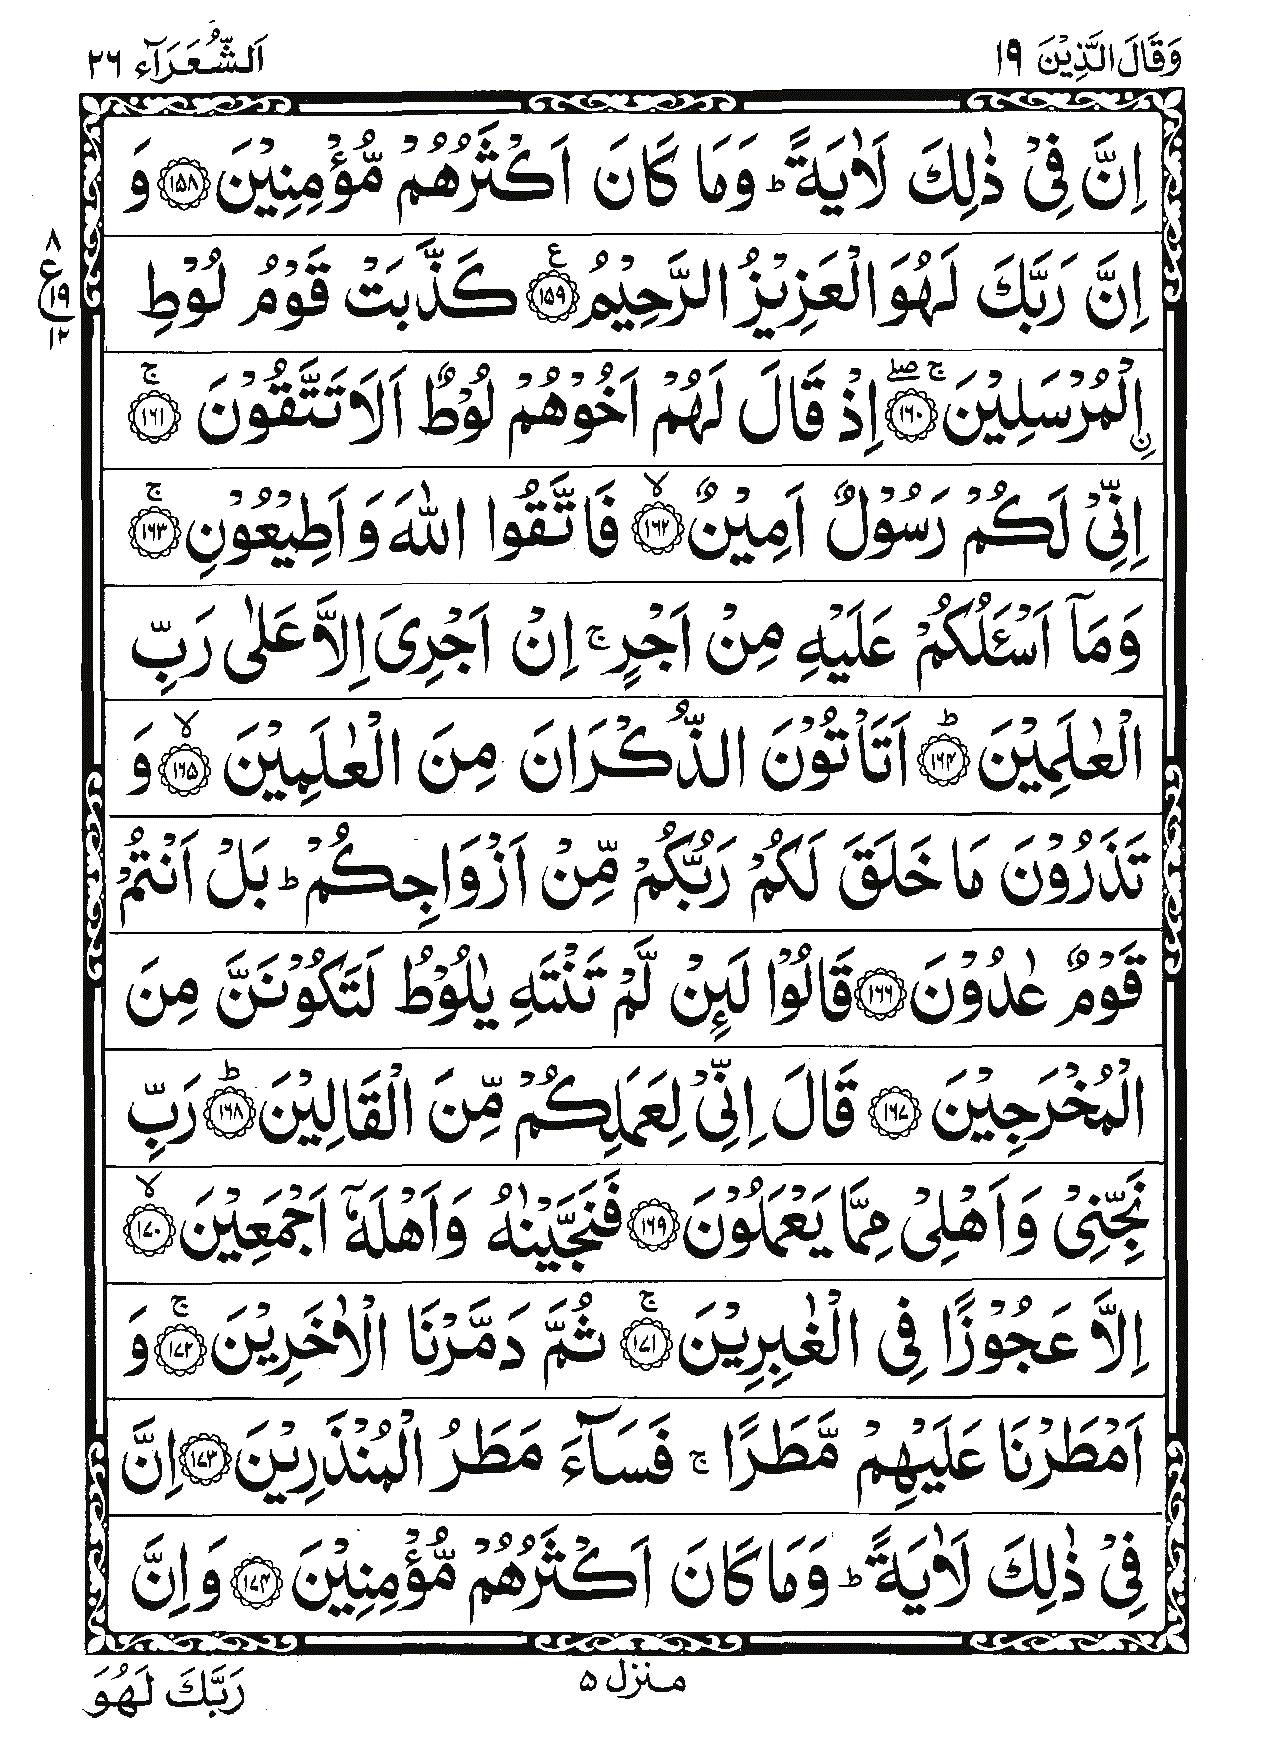 وَقَالَ الَّذِيْنَ ١٩
اَلشُّعَرَآء ٢٦
اِنَّ فِيْ ذٰلِكَ لَاٰيَةً ؕ وَمَا كَانَ اَكْثَرُهُمْ مُّؤْمِنِيْنَ ﴿١٥٨﴾ وَ
اِنَّ رَبَّكَ لَهُوَ الْعَزِيْزُ الرَّحِيْمُ ﴿١٥٩﴾ ع كَذَّبَتْ قَوْمُ لُوْطِ
ع ٨ ١٩ ١٢
اِ۟لْمُرْسَلِيْنَ ﴿١٦٠﴾ ۖۚ اِذْ قَالَ لَهُمْ اَخُوْهُمْ لُوْطٌ اَلَا تَتَّقُوْنَ ﴿١٦١﴾ ۚ
اِنِّيْ لَكُمْ رَسُوْلٌ اَمِيْنٌ ﴿١٦٢﴾ ۙ فَاتَّقُوا اللّٰهَ وَاَطِيْعُوْنِ ﴿١٦٣﴾ ۚ
وَمَآ اَسْـَٔلُكُمْ عَلَيْهِ مِنْ اَجْرٍ ۚ اِنْ اَجْرِيَ اِلَّا عَلٰى رَبِّ
الْعٰلَمِيْنَ ﴿١٦٤﴾ ؕ اَتَاْتُوْنَ الذُّكْرَانَ مِنَ الْعٰلَمِيْنَ ﴿١٦٥﴾ ۙ وَ
تَذَرُوْنَ مَا خَلَقَ لَكُمْ رَبُّكُمْ مِّنْ اَزْوَاجِكُمْ ؕ بَلْ اَنْتُمْ
قَوْمٌ عٰدُوْنَ ﴿١٦٦﴾ قَالُوْا لَىِٕنْ لَّمْ تَنْتَهِ يٰلُوْطُ لَتَكُوْنَنَّ مِنَ
الْمُخْرَجِيْنَ ﴿١٦٧﴾ قَالَ اِنِّيْ لِعَمَلِكُمْ مِّنَ الْقَالِيْنَ ﴿١٦٨﴾ ؕ رَبِّ
نَجِّنِيْ وَاَهْلِيْ مِمَّا يَعْمَلُوْنَ ﴿١٦٩﴾ فَنَجَّيْنٰهُ وَاَهْلَهٗٓ اَجْمَعِيْنَ ﴿١٧٠﴾ ۙ
اِلَّا عَجُوْزًا فِي الْغٰبِرِيْنَ ﴿١٧١﴾ ۚ ثُمَّ دَمَّرْنَا الْاٰخَرِيْنَ ﴿١٧٢﴾ ۚ وَ
اَمْطَرْنَا عَلَيْهِمْ مَّطَرًا ۚ فَسَآءَ مَطَرُ الْمُنْذَرِيْنَ ﴿١٧٣﴾ اِنَّ
فِيْ ذٰلِكَ لَاٰيَةً ؕ وَمَا كَانَ اَكْثَرُهُمْ مُّؤْمِنِيْنَ ﴿١٧٤﴾ وَاِنَّ
منزل ٥
رَبَّكَ لَهُوَ